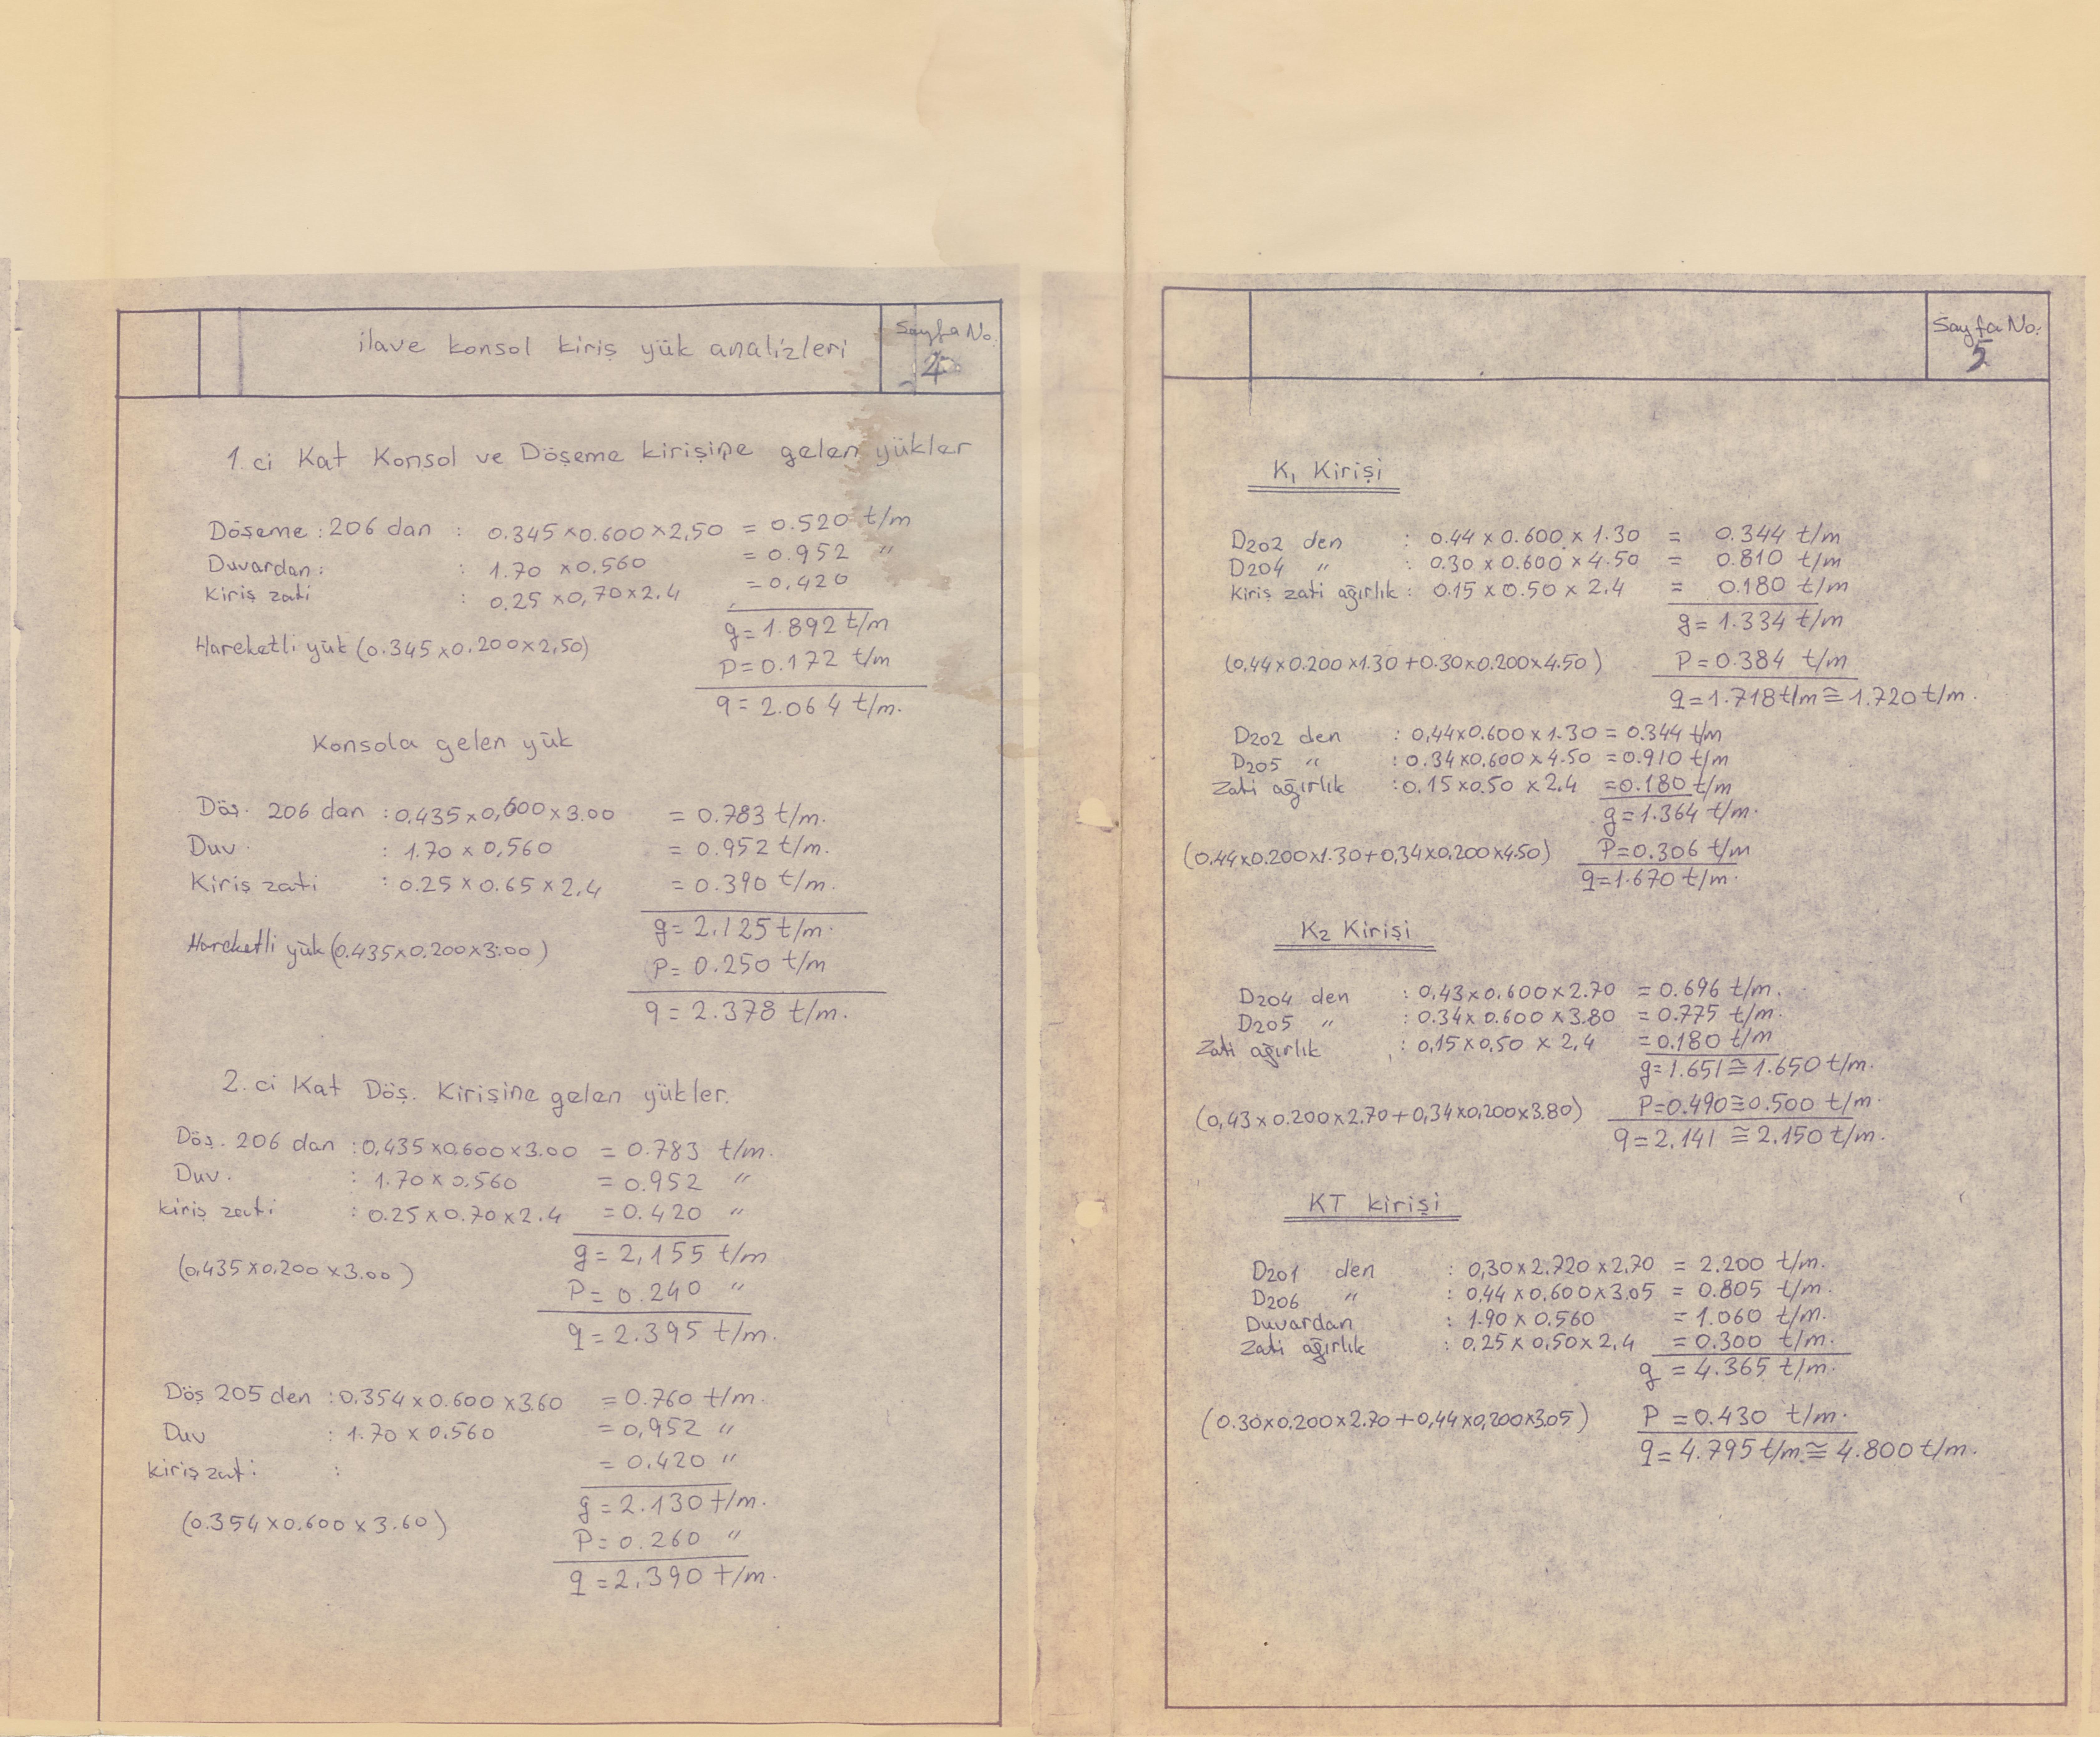 ilave konsol kiriş yük analizleri
Sayfa No.
4
1.ci Kat Konsol ve Döşeme kirişine gelen yükler
Döşeme : 206 dan : 0.345 x 0.600 x 2,50 = 0.520 t/m
Duvardan : : 1.70 x 0.560 = 0.952 "
Kiriş zati : 0.25 x 0,70 x 2.4 = 0.420
g = 1.892 t/m
Hareketli yük (0.345 x 0.200 x 2,50)
P = 0.172 t/m
q = 2.064 t/m.
Konsola gelen yük
Döş. 206 dan : 0.435 x 0,600 x 3.00 = 0.783 t/m.
Duv. : 1.70 x 0,560 = 0.952 t/m.
Kiriş zati : 0.25 x 0.65 x 2.4 = 0.390 t/m.
g = 2.125 t/m.
Hareketli yük (0.435 x 0.200 x 3.00)
P = 0.250 t/m
q = 2.378 t/m.
2.ci Kat Döş. Kirişine gelen yükler.
Döş. 206 dan : 0,435 x 0.600 x 3.00 = 0.783 t/m.
Duv. : 1.70 x 0.560 = 0.952 "
kiriş zati : 0.25 x 0.70 x 2.4 = 0.420 "
g = 2,155 t/m
(0,435 x 0.200 x 3.00)
P = 0.240 "
q = 2.395 t/m.
Döş 205 den : 0.354 x 0.600 x 3.60 = 0.760 t/m.
Duv : 1.70 x 0.560 = 0,952 "
kiriş zati : = 0.420 "
g = 2.130 t/m.
(0.354 x 0.600 x 3.60)
P = 0.260 "
q = 2.390 t/m.
Sayfa No:
5
K1 Kirişi
D202 den : 0.44 x 0.600 x 1.30 = 0.344 t/m
D204 " : 0.30 x 0.600 x 4.50 = 0.810 t/m
Kiriş zati ağırlık : 0.15 x 0.50 x 2.4 = 0.180 t/m
g = 1.334 t/m
(0,44 x 0.200 x 1.30 + 0.30 x 0.200 x 4.50) P = 0.384 t/m
q = 1.718 t/m ≅ 1.720 t/m.
D202 den : 0,44 x 0.600 x 1.30 = 0.344 t/m
D205 " : 0.34 x 0.600 x 4.50 = 0.910 t/m
Zati ağırlık : 0.15 x 0.50 x 2.4 = 0.180 t/m
g = 1.364 t/m.
(0.44 x 0.200 x 1.30 + 0,34 x 0.200 x 4.50) P = 0.306 t/m
q = 1.670 t/m.
K2 Kirişi
D204 den : 0,43 x 0.600 x 2.70 = 0.696 t/m.
D205 " : 0.34 x 0.600 x 3.80 = 0.775 t/m.
Zati ağırlık : 0,15 x 0,50 x 2,4 = 0.180 t/m
g = 1.651 ≅ 1.650 t/m.
(0,43 x 0.200 x 2.70 + 0,34 x 0,200 x 3.80) P = 0.490 ≅ 0.500 t/m.
q = 2.141 ≅ 2.150 t/m.
KT kirişi
D201 den : 0,30 x 2.720 x 2,70 = 2.200 t/m.
D206 " : 0,44 x 0,600 x 3,05 = 0.805 t/m.
Duvardan : 1.90 x 0.560 = 1.060 t/m.
Zati ağırlık : 0.25 x 0,50 x 2,4 = 0.300 t/m.
g = 4.365 t/m.
(0.30 x 0.200 x 2.70 + 0,44 x 0,200 x 3.05) P = 0.430 t/m.
q = 4.795 t/m. ≅ 4.800 t/m.